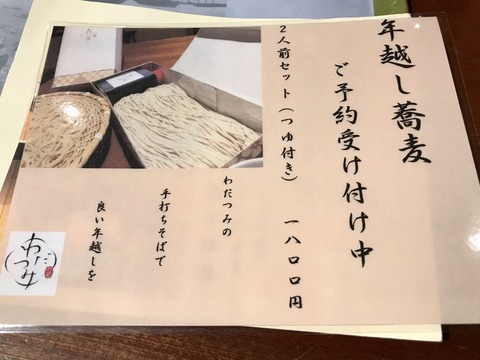 年越し蕎麦
ご予約受け付け中
2人前セット(つゆ付き) 一八〇〇円
わだつみの
手打ちそばで
良い年越しを
わだつみ